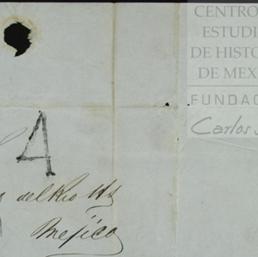 CENTRO
ESTUDI
DE HISTO
DE MEX
FUNDAC
Carlos S
4
del Rio Hs
Mejico